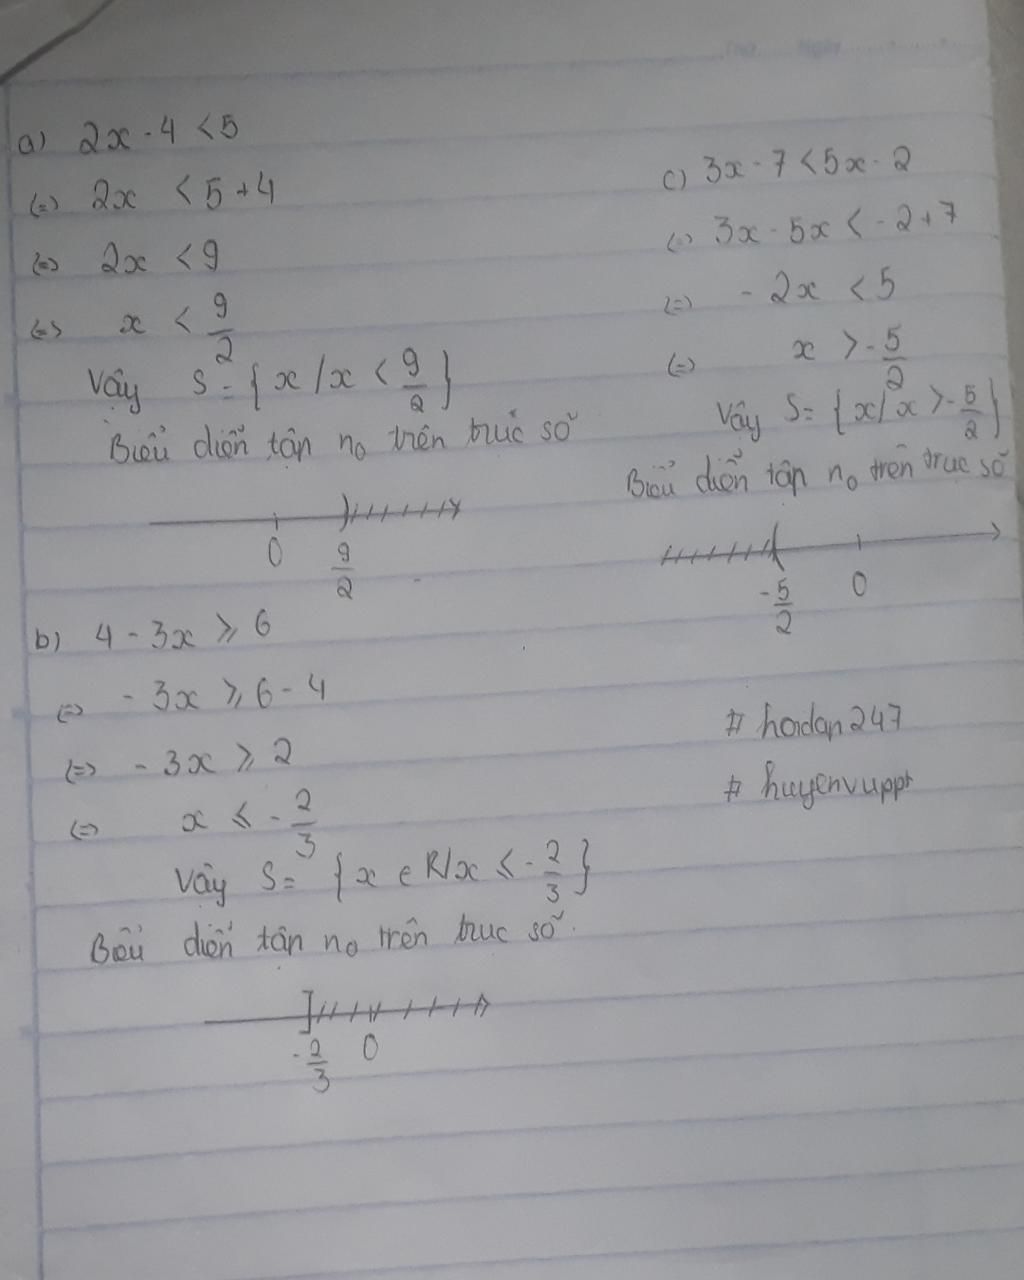 a) 2x - 4 < 5
(=) 2x < 5 + 4
(=) 2x < 9
(=) x < 9/2
Vậy S = { x / x < 9/2 }
Biểu diễn tập no trên trục số
0 9/2
b) 4 - 3x ⩾ 6
(=) - 3x ⩾ 6 - 4
(=) - 3x ⩾ 2
(=) x ⩽ - 2/3
Vậy S = { x e R / x ⩽ - 2/3 }
Biểu diễn tập no trên trục số.
- 2/3 0
c) 3x - 7 < 5x - 2
(=) 3x - 5x < - 2 + 7
(=) - 2x < 5
(=) x > - 5/2
Vậy S = { x / x > - 5/2 }
Biểu diễn tập no trên trục số
- 5/2 0
# hoidap247
# huyenvuppt